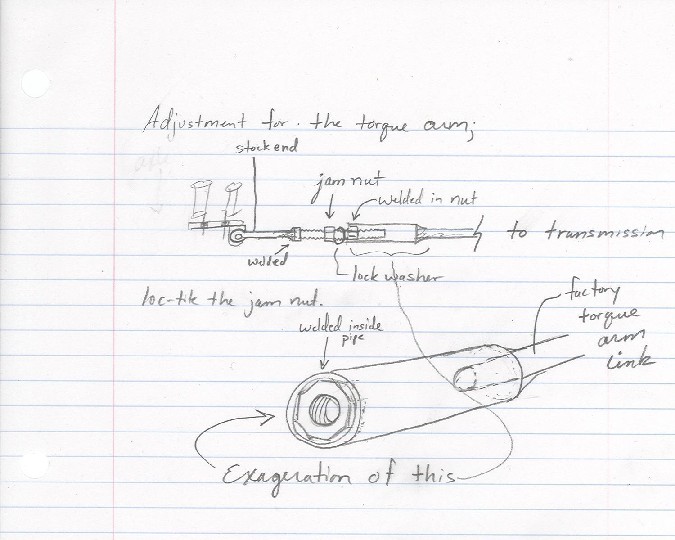 Adjustment for. the torque arm;
stock end
jam nut
welded in nut
to transmission
welded
lock washer
loc-tite the jam nut.
factory
torque
arm
link
welded inside
pipe
Exageration of this